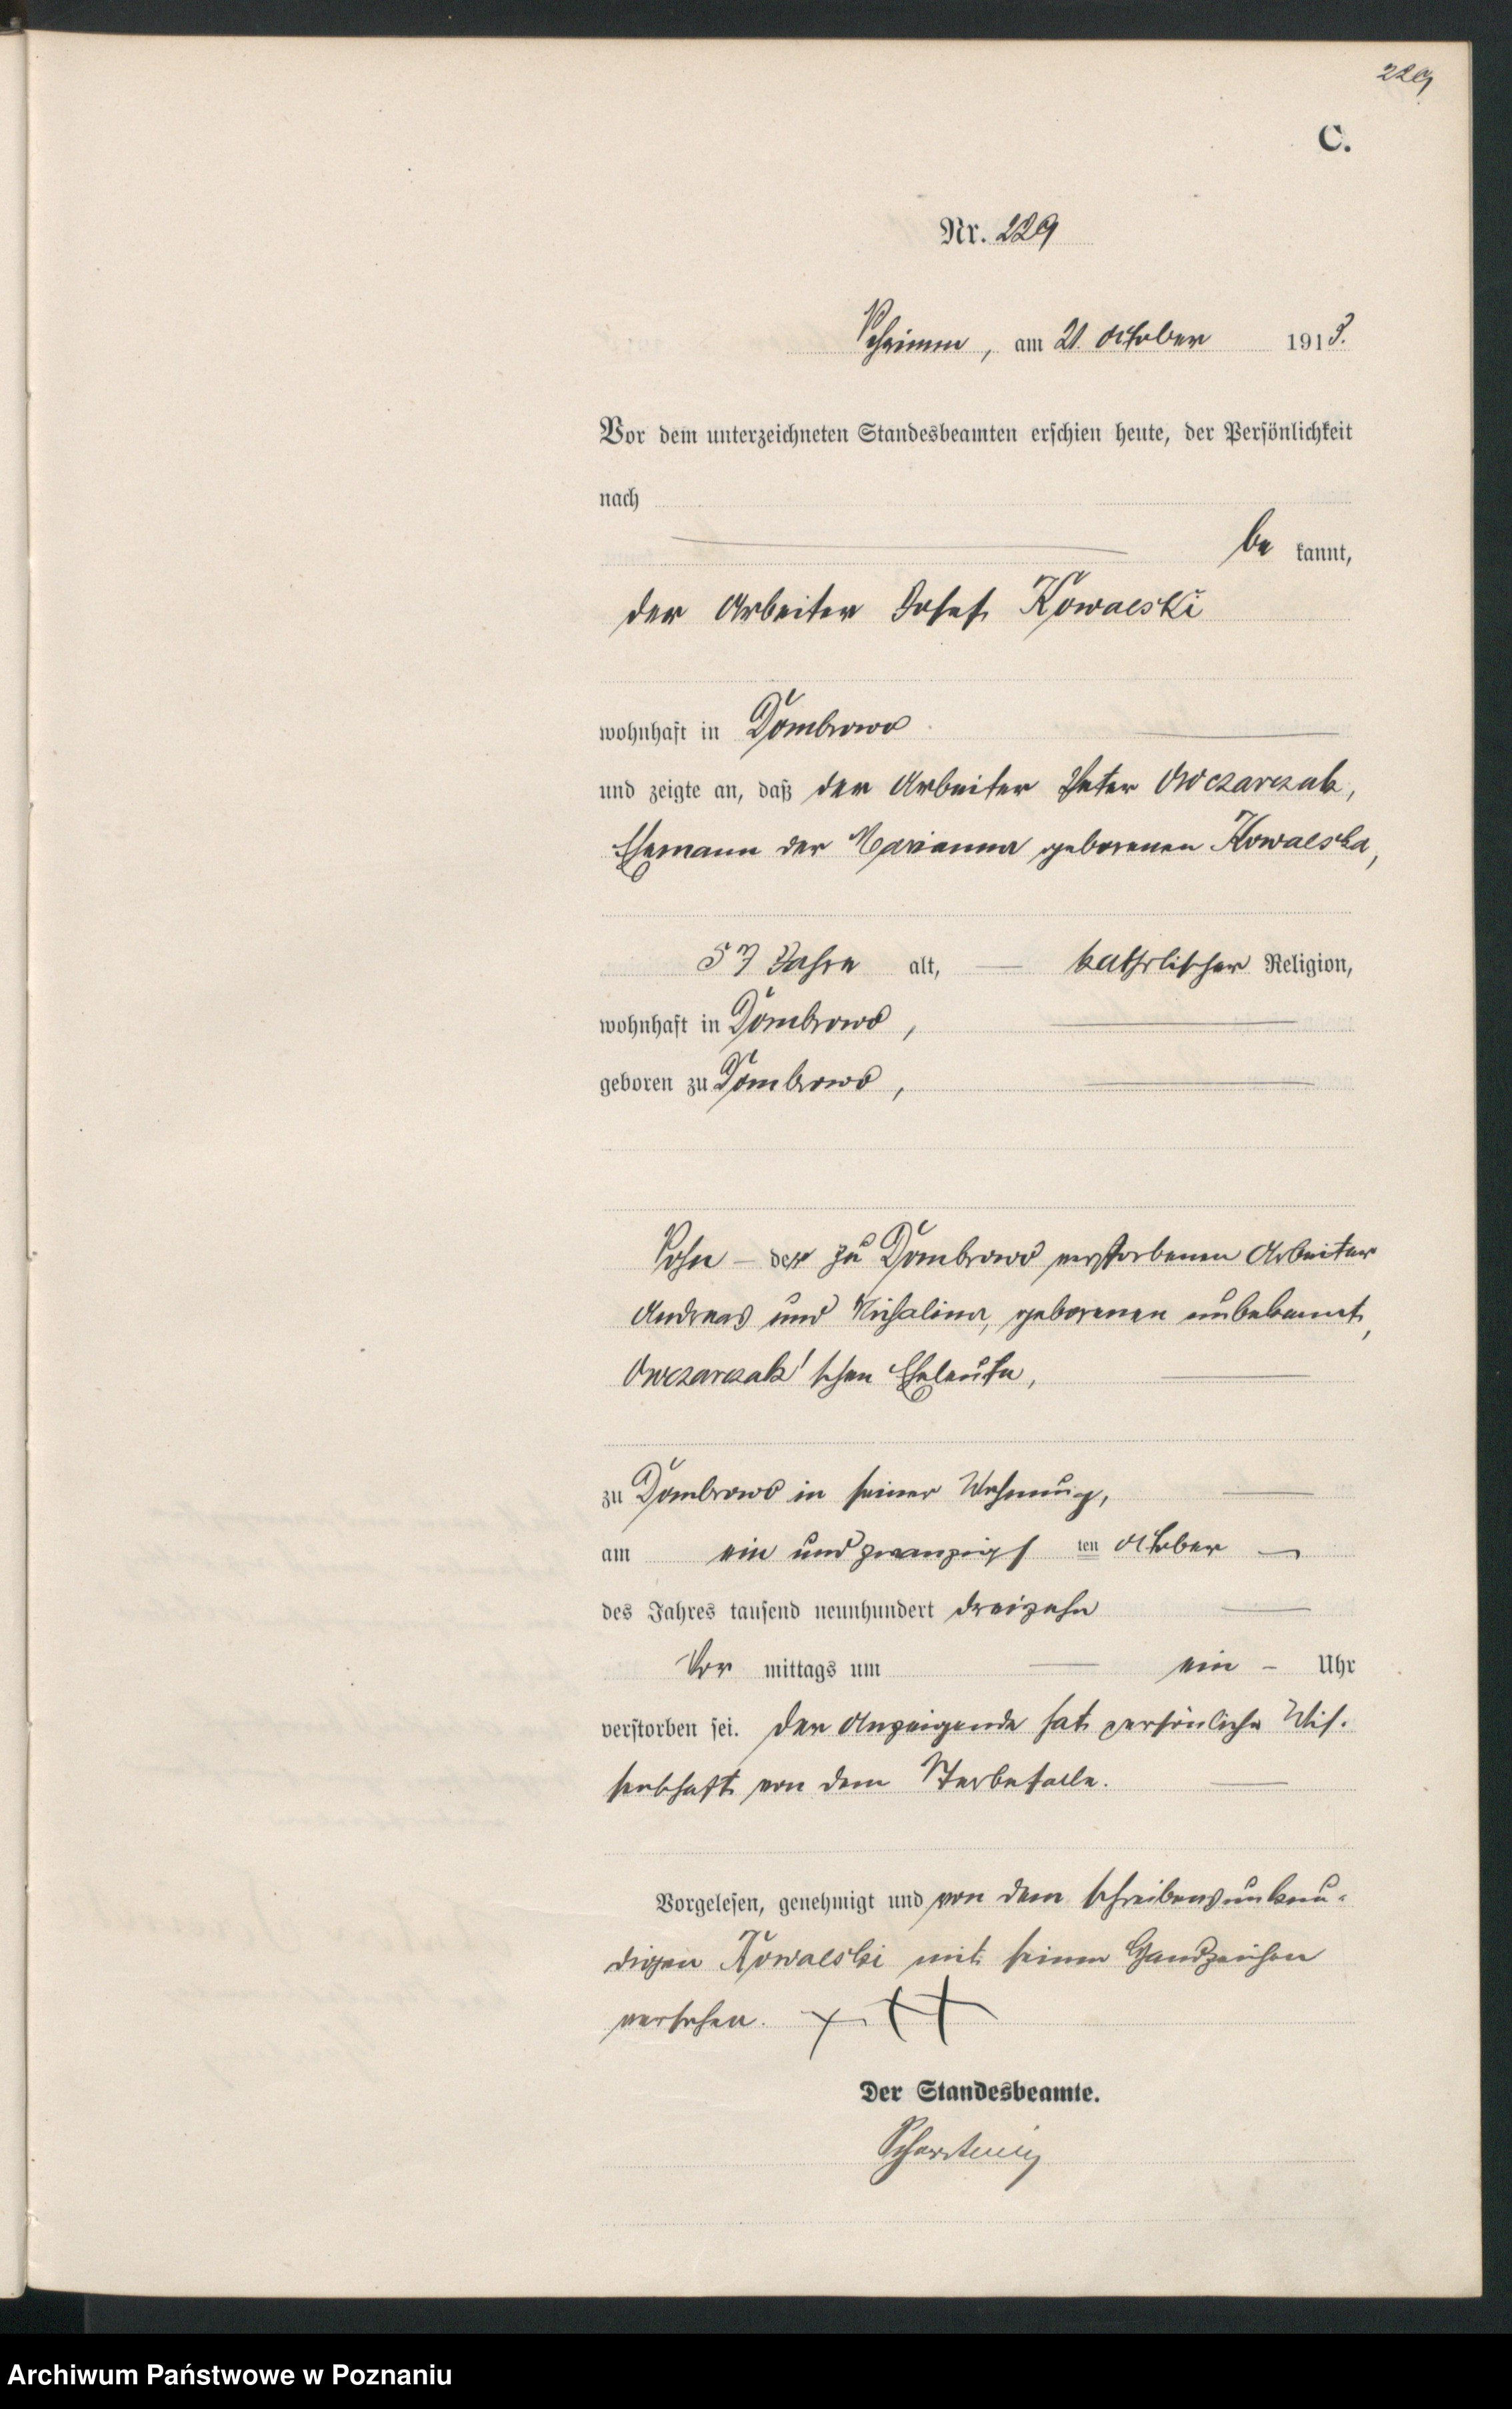 229
C.
Nr. 229
Schrimm, am 21. October 1913.
Vor dem unterzeichneten Standesbeamten erschien heute, der Persönlichkeit
nach
be kannt,
der Arbeiter Josef Kowalski
wohnhaft in Dombrowo
und zeigte an, daß der Arbeiter Peter Owczarczak,
Ehemann der Marianna geborenen Kowalska,
57 Jahre alt, katholischer Religion,
wohnhaft in Dombrowo,
geboren zu Dombrowo,
Sohn der zu Dombrowo verstorbenen Arbeiter
Andreas und Michalina, geborenen unbekannt,
Owczarczak'schen Eheleute,
zu Dombrowo in seiner Wohnung,
am ein und zwanzigs ten October
des Jahres tausend neunhundert dreizehn
Vor mittags um ein Uhr
verstorben sei. Der Anzeigende hat persönliche Wis-
senschaft von dem Sterbefalle.
Vorgelesen, genehmigt und von dem schreibensunkun-
digen Kowalski mit seinem Handzeichen
versehen. +++
Der Standesbeamte.
Archiwum Państwowe w Poznaniu